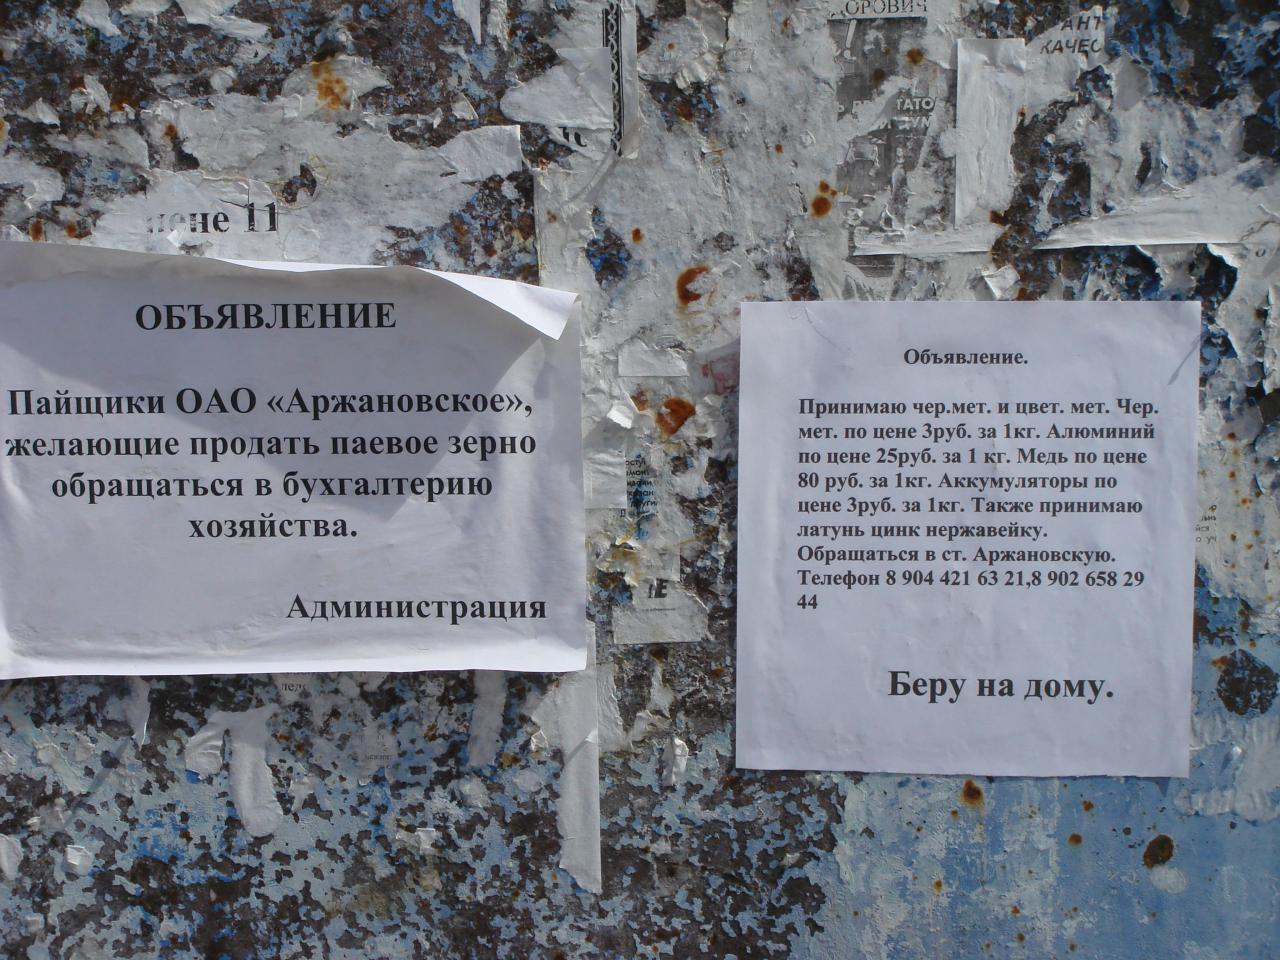 ДОРОВИЧ
АНТ
КАЧЕС
цене 11
ОБЪЯВЛЕНИЕ
Пайщики ОАО «Аржановское»,
желающие продать паевое зерно
обращаться в бухгалтерию
хозяйства.
Администрация
Объявление.
Принимаю чер.мет. и цвет. мет. Чер.
мет. по цене 3руб. за 1кг. Алюминий
по цене 25руб. за 1 кг. Медь по цене
80 руб. за 1кг. Аккумуляторы по
цене 3руб. за 1кг. Также принимаю
латунь цинк нержавейку.
Обращаться в ст. Аржановскую.
Телефон 8 904 421 63 21,8 902 658 29
44
Беру на дому.